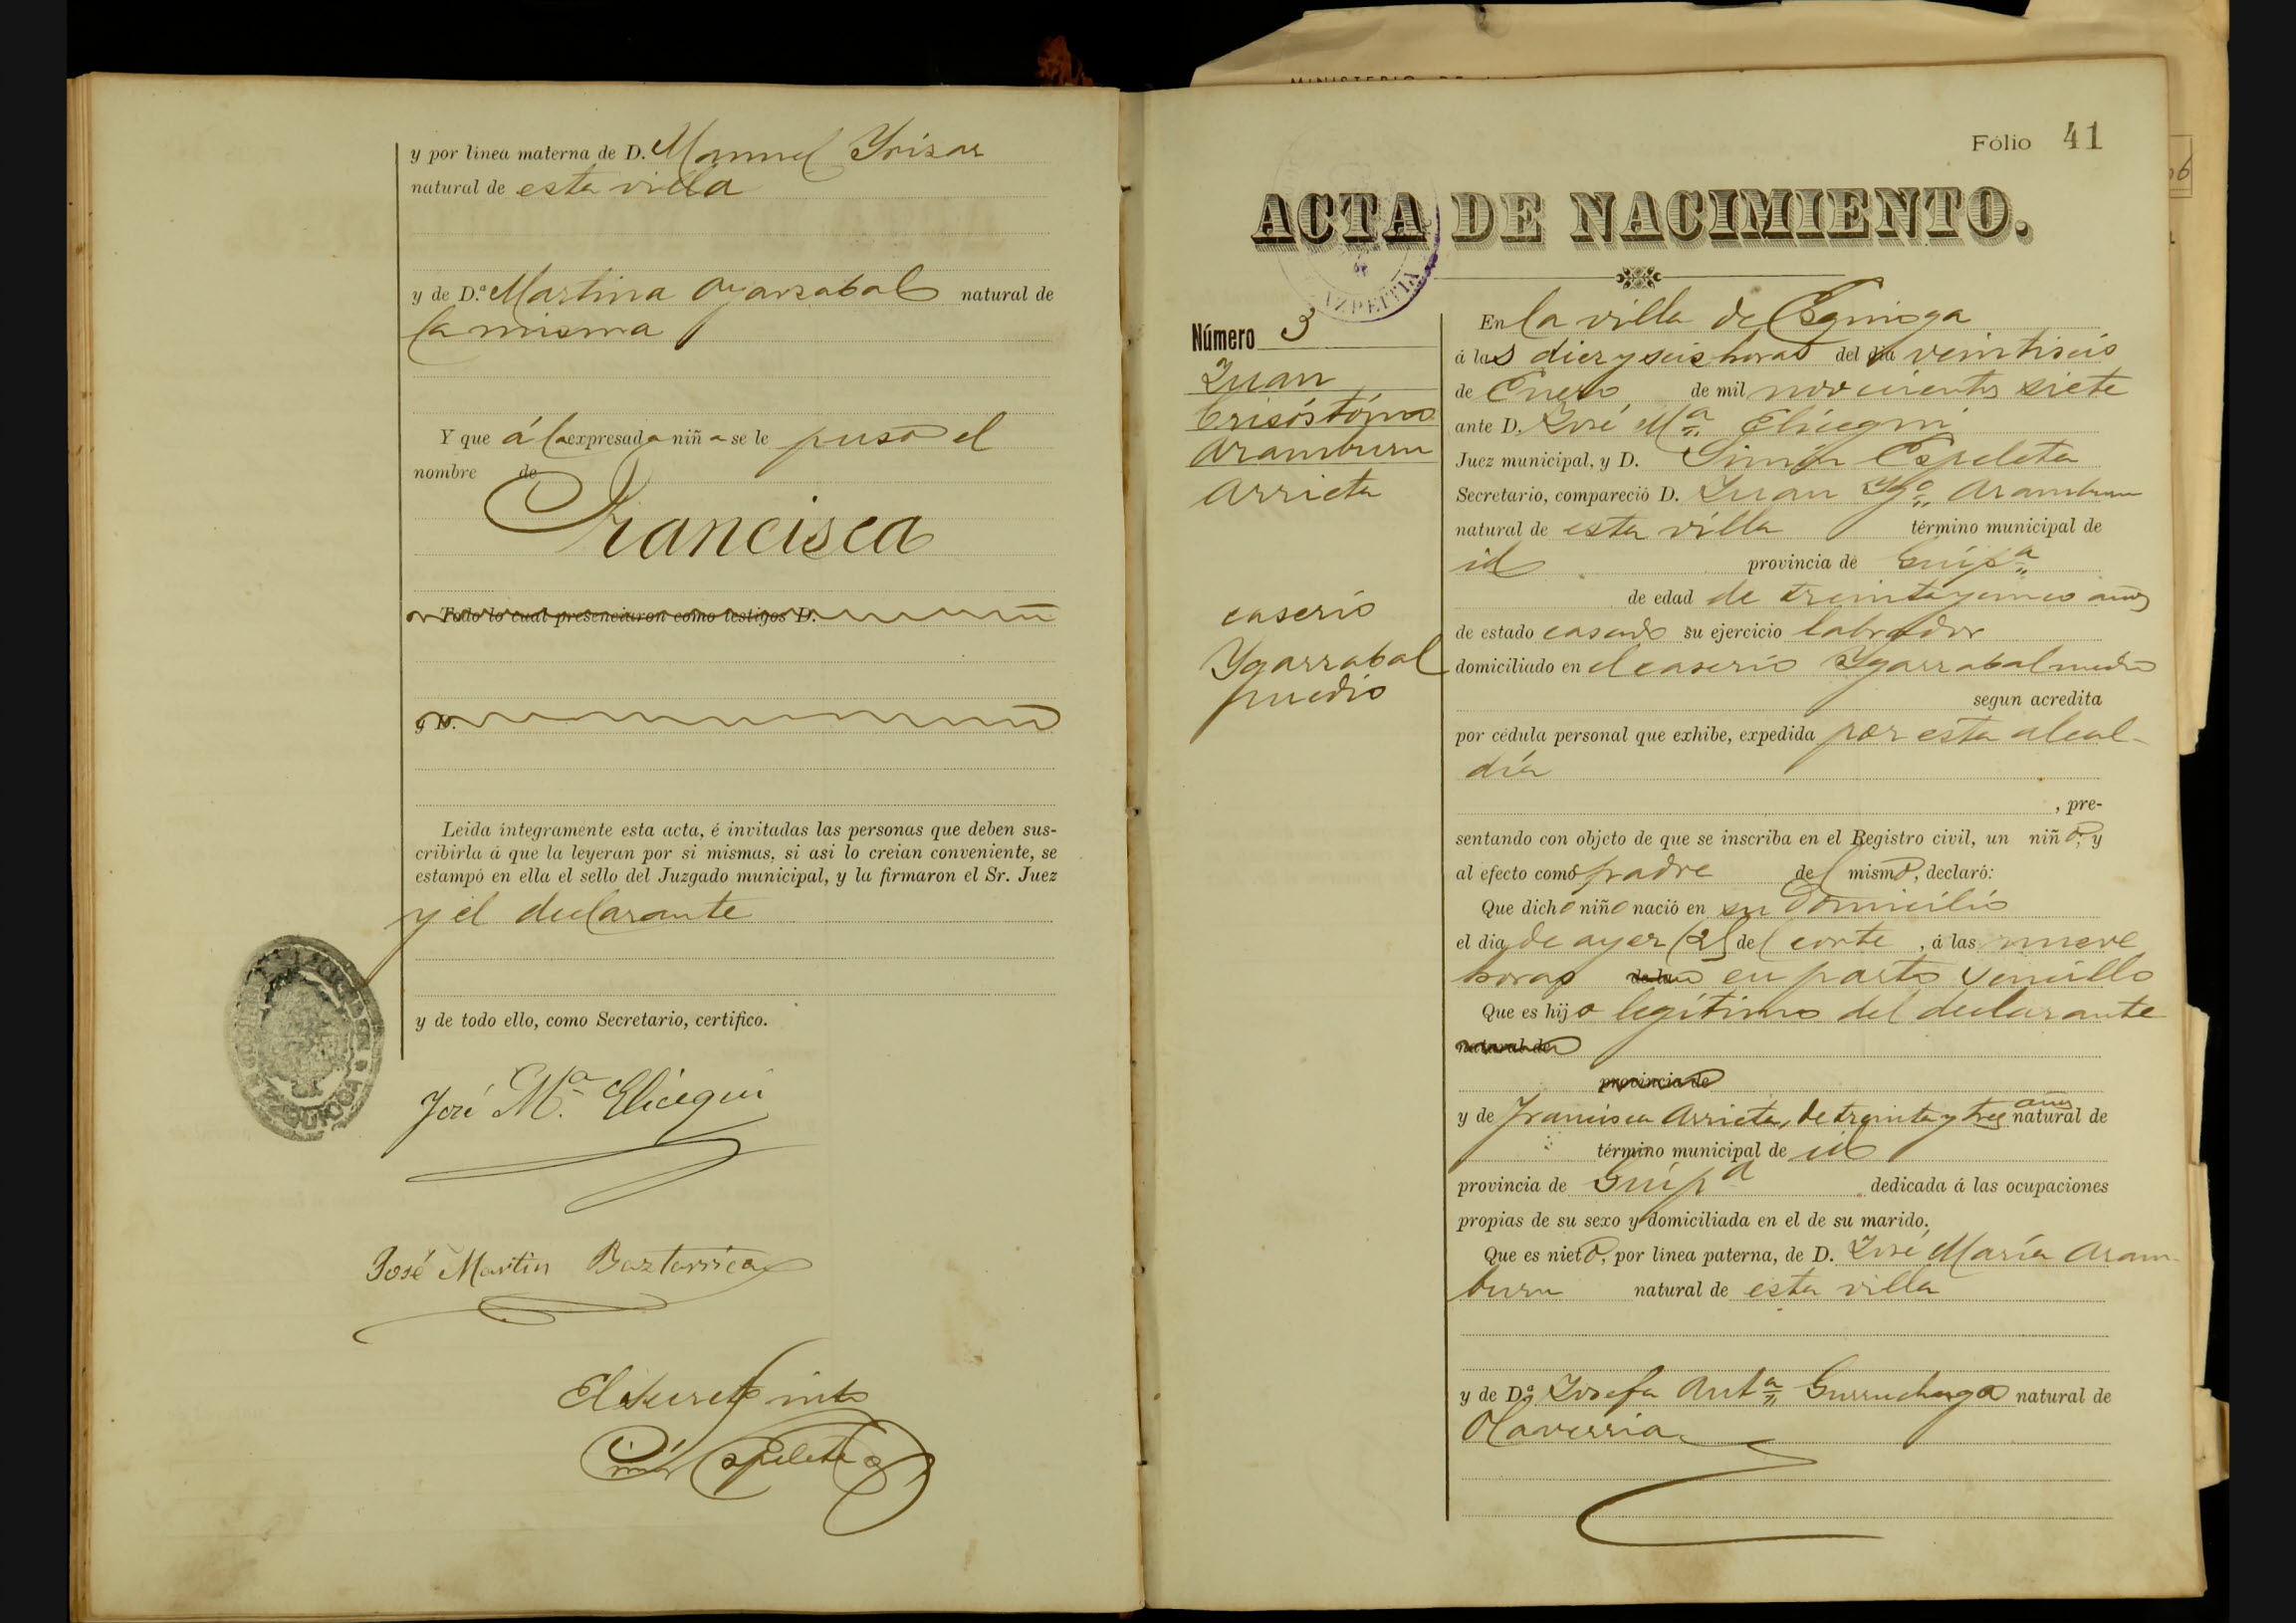 y por línea materna de D. Manuel Yrizar
natural de esta villa
y de D.ª Martina Oyarzabal natural de
la misma
Y que á la expresada niña se le puso el
nombre de
Francisca
Todo lo cual presenciaron como testigos D.
y D.
Leida íntegramente esta acta, é invitadas las personas que deben sus-
cribirla á que la leyeran por si mismas, si asi lo creian conveniente, se
estampó en ella el sello del Juzgado municipal, y la firmaron el Sr. Juez
y el declarante
y de todo ello, como Secretario, certifico.
José M.ª Elicegui
José Martin Baztarrica
El Secret
Simón Espeleta
Fólio 41
ACTA DE NACIMIENTO.
AZPEITIA
Número 3
Juan
Crisóstómo
Aramburu
Arrieta
caserio
Ygarrabal
medio
En la villa de Ezquioga
á las diez y seis horas del dia veintiseis
de Enero de mil novecientos siete
ante D. José M.ª Elicegui
Juez municipal, y D. Simón Espeleta
Secretario, compareció D. Juan Ygº Aramburu
natural de esta villa término municipal de
id provincia de Guipª
de edad de treintaycinco años
de estado casado su ejercicio labrador
domiciliado en el caserio Ygarrabal medio
segun acredita
por cédula personal que exhibe, expedida por esta alcal-
día
, pre-
sentando con objeto de que se inscriba en el Registro civil, un niño, y
al efecto como padre del mismo, declaró:
Que dicho niño nació en su domicilio
el dia de ayer (25 del corte , á las nueve
horas de la en parto sencillo
Que es hijo legítimo del declarante
natural de
provincia de
y de Francisca Arrieta, de treinta y tres años natural de
término municipal de id
provincia de Guipª dedicada á las ocupaciones
propias de su sexo y domiciliada en el de su marido.
Que es nieto, por línea paterna, de D. José María Aram-
buru natural de esta villa
y de D.ª Josefa Antª Gurruchaga natural de
Olaverria